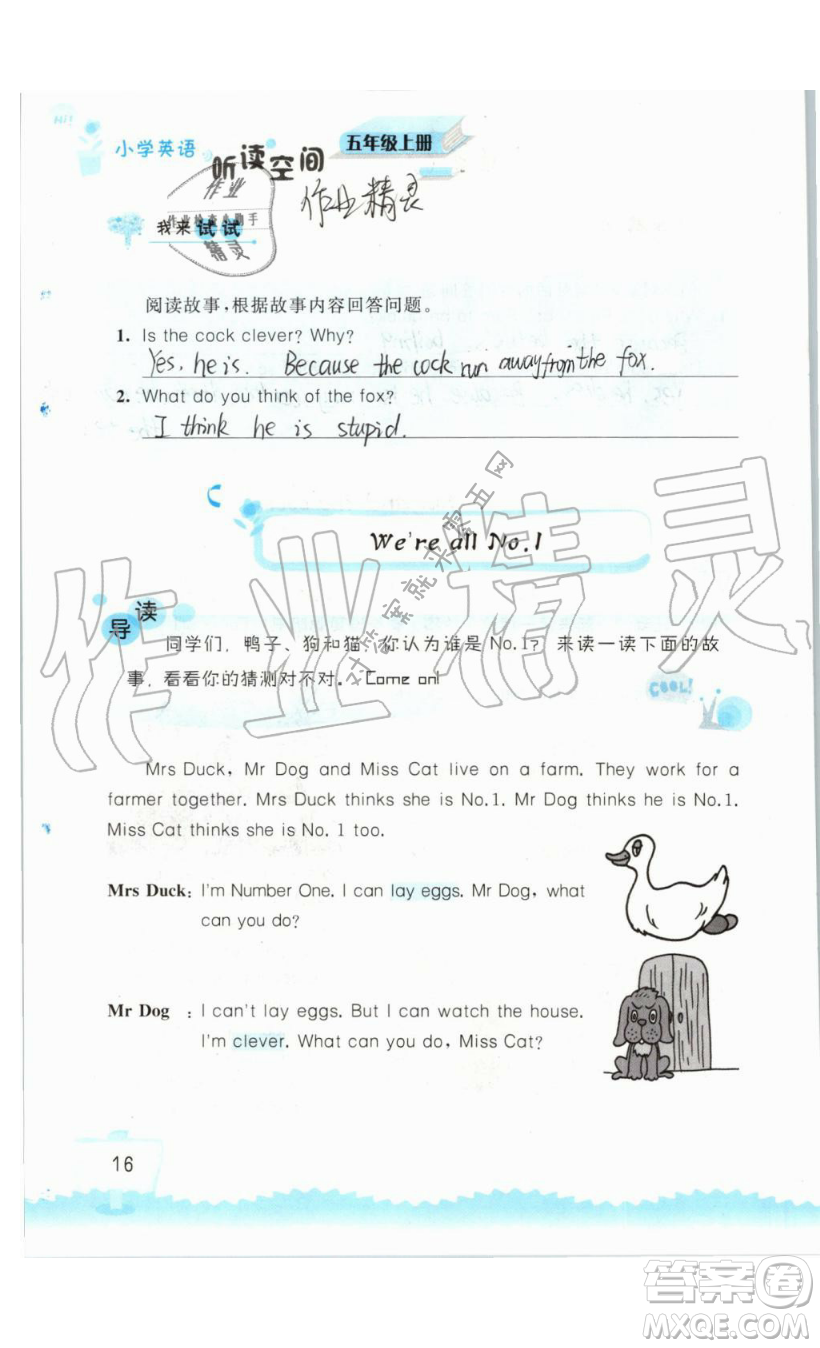 Hi!
小学英语
听读空间
五年级上册
作业
作业检查小助手
精灵
作业精灵
我来试试
阅读故事,根据故事内容回答问题。
1. Is the cock clever? Why?
Yes, he is. Because the cock run away from the fox.
2. What do you think of the fox?
I think he is stupid.
We're all No.1
作业精灵
导读
同学们,鸭子、狗和猫,你认为谁是No.1? 来读一读下面的故
事,看看你的猜测对不对。Come on!
COOL!
Mrs Duck, Mr Dog and Miss Cat live on a farm. They work for a
farmer together. Mrs Duck thinks she is No.1. Mr Dog thinks he is No.1.
Miss Cat thinks she is No. 1 too.
Mrs Duck: I'm Number One. I can lay eggs. Mr Dog, what
can you do?
Mr Dog : I can't lay eggs. But I can watch the house.
I'm clever. What can you do, Miss Cat?
16
答案卷
MXQE.COM